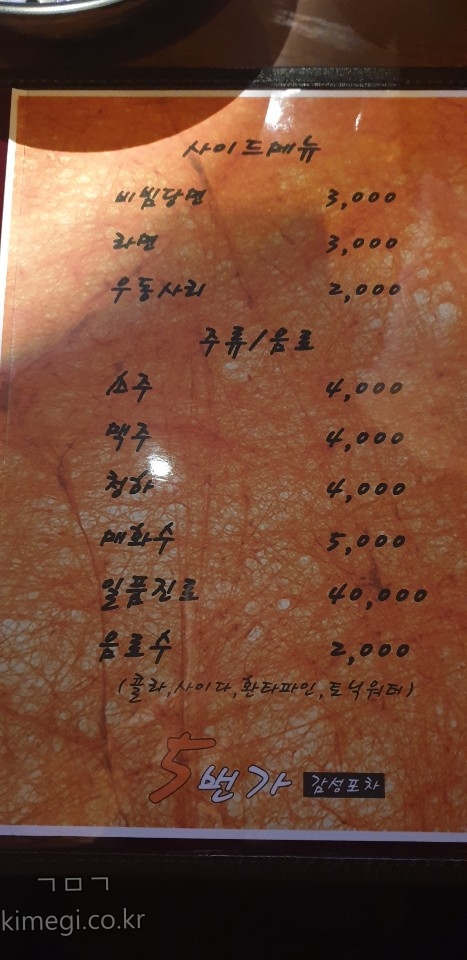 사이드메뉴
비빔당면 3,000
라면 3,000
우동사리 2,000
주류/음료
소주 4,000
맥주 4,000
청하 4,000
매화수 5,000
일품진로 40,000
음료수 2,000
(콜라,사이다,환타파인,토닉워터)
5번가 감성포차
ㄱㅁㄱ
kimegi.co.kr